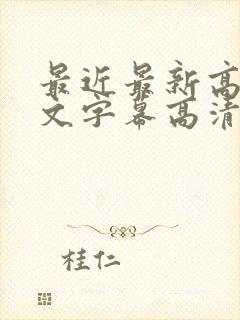 最近最新高
文字幕高清
桂仁